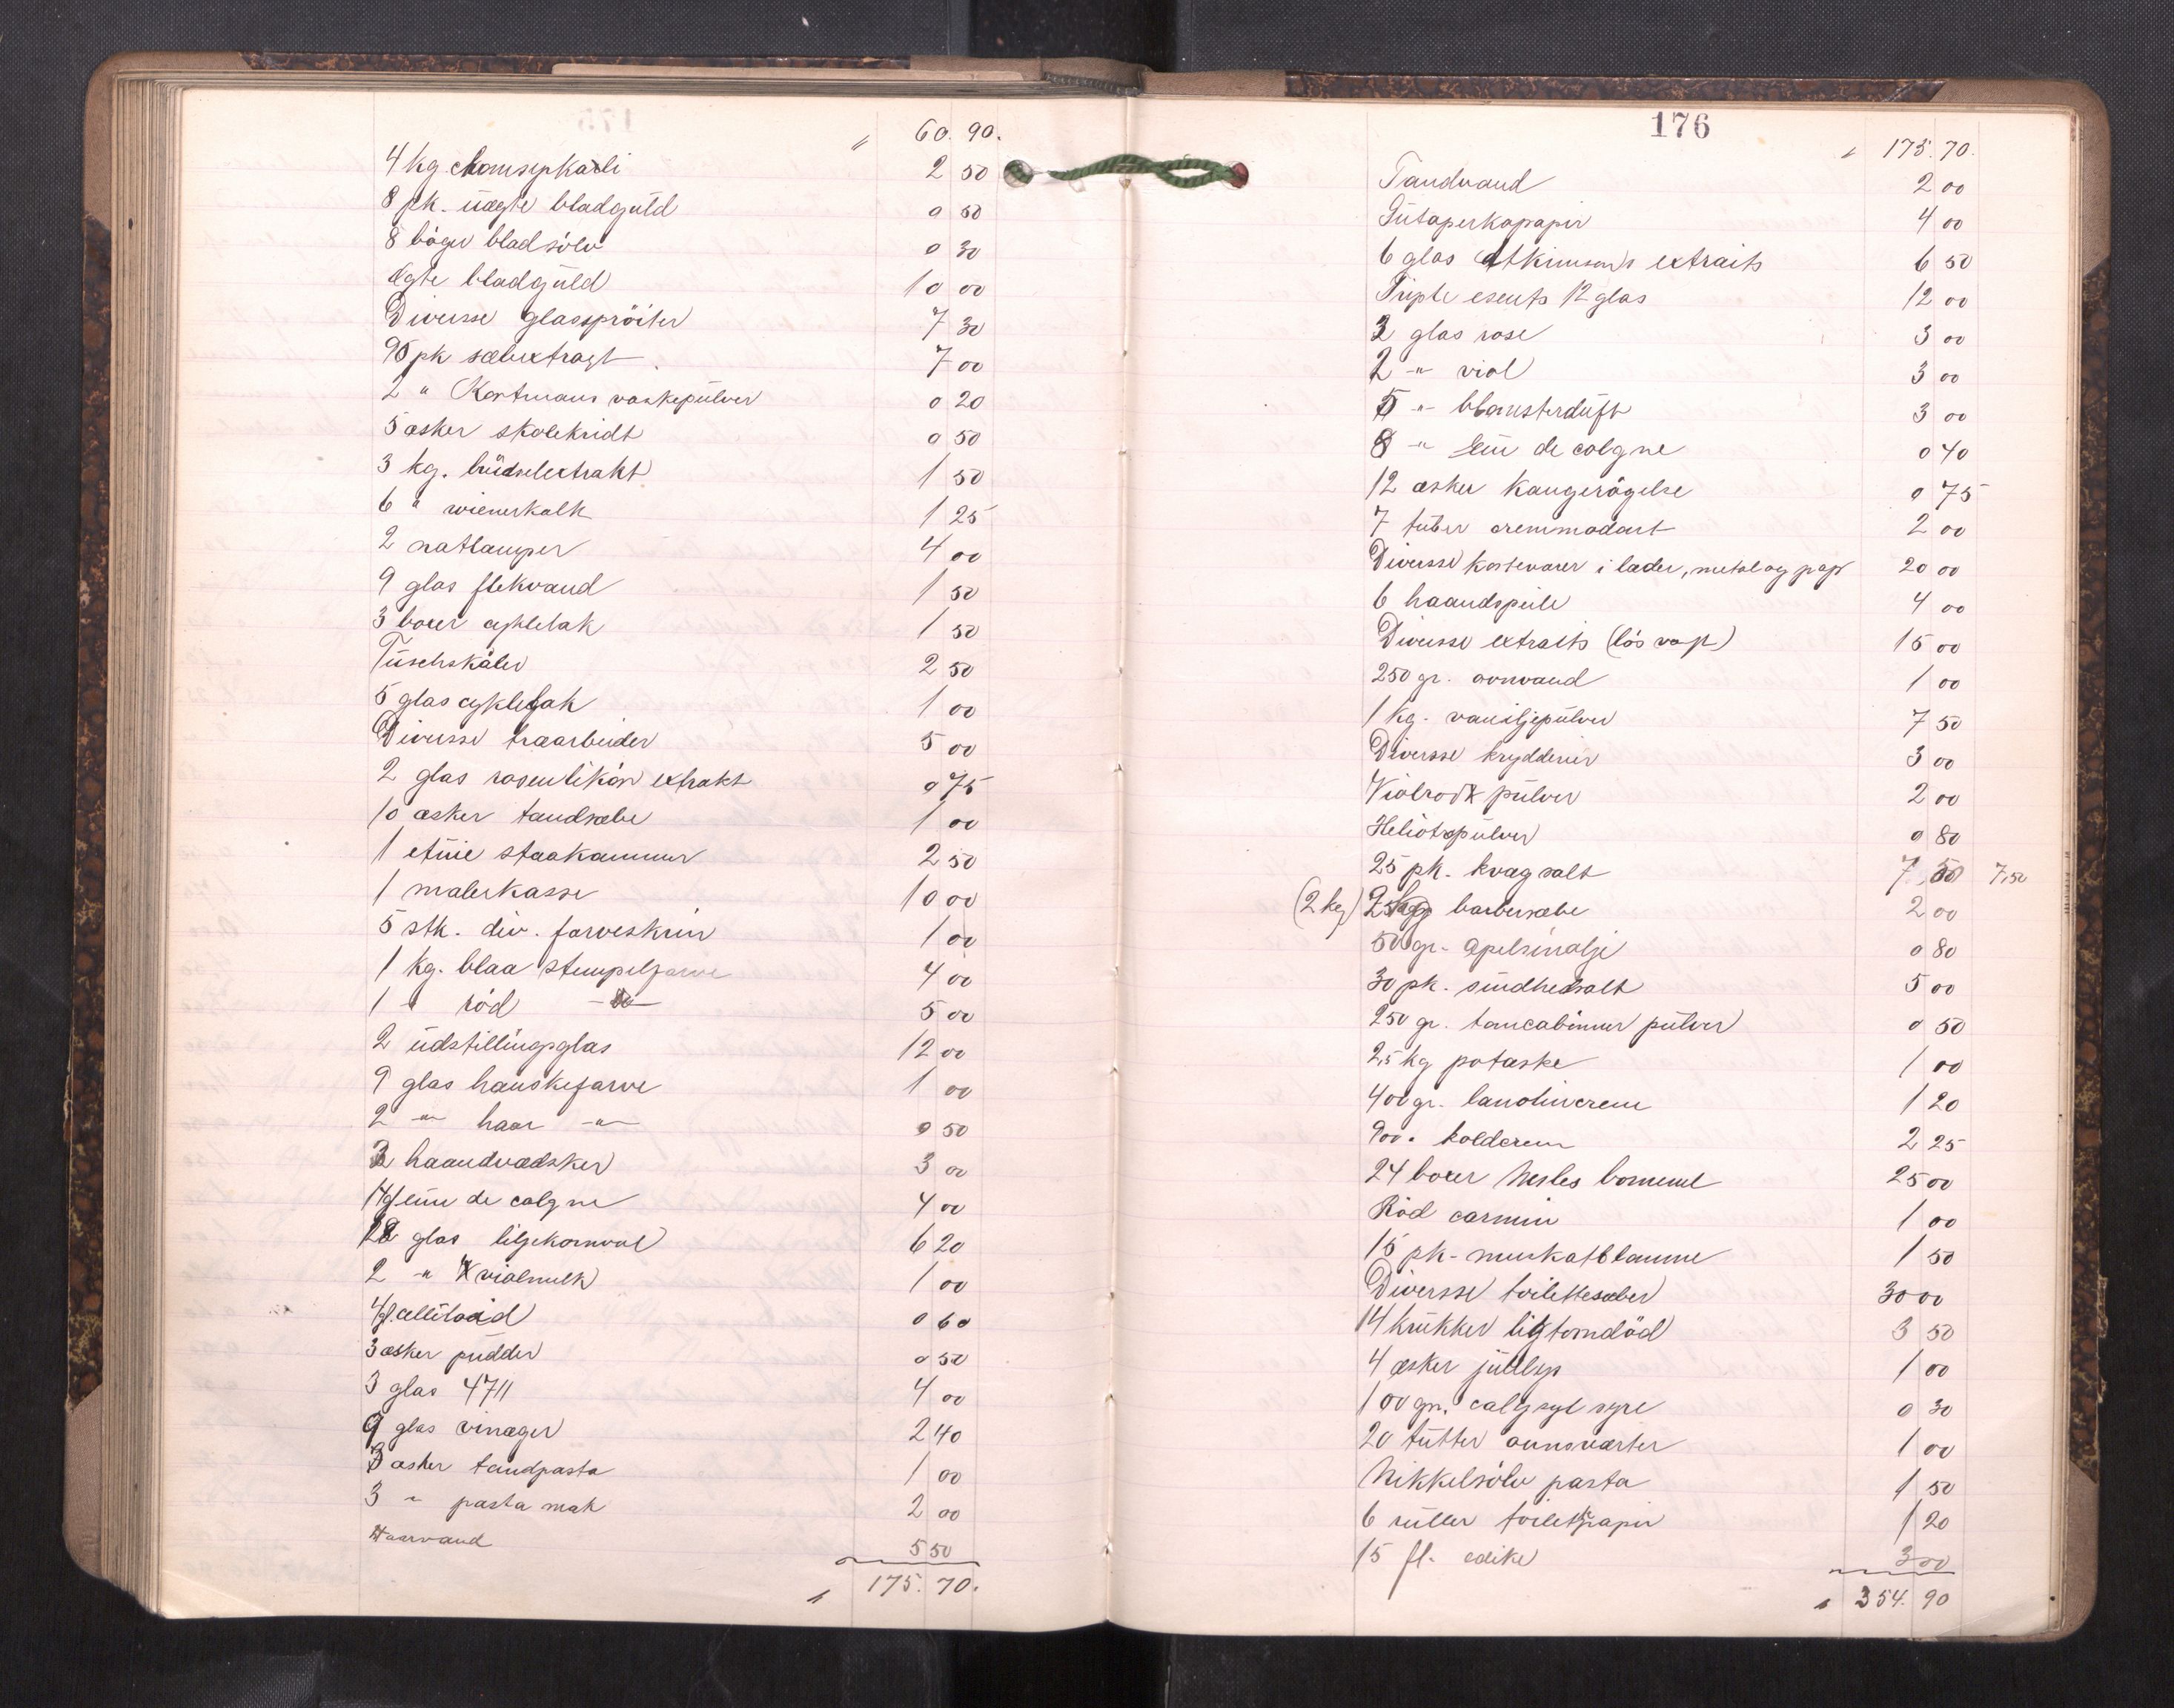 " 60. 90.
4 kg. chamsepkali 2 50
8 pk. üægte bladgüld 0 50
8 böger bladsölv 0 30
Ægte bladgüld 10 00
Diverse glasspröiter 7 30
95 pk sæbextragt 7 00
2 " Kortmans vaskepülver 0 20
5 æsker skolekridt 0 50
3 kg. brüdselextrakt 1 50
6 " wienerkalk 1 25
2 natlamper 4 00
9 glas flekvand 1 50
3 boxer cyklelak 1 50
Tüschskåler 2 50
5 glas cyklelak 1 00
Diversse træarbeider 5 00
2 glas rosenlikör extrakt 0 75
10 æsker tandsæbe 1 00
1 etüie staakammer 2 50
1 malerkasse 10 00
5 stk. div. farveskrin 1 00
1 kg. blaa stempelfarve 4 00
1 " röd - " - 5 00
2 üdstillingsglas 12 00
9 glas hanskefarve 1 00
2 - " - haar - " - 0 50
3 haandvædsker 3 00
14 gl eüu de colgne 4 00
12 glas liljekonvol 6 20
2 - " violmelk 1 00
4 gl. cellüloid 0 60
3 æsker pudder 0 50
3 glas 4711 4 00
9 glas vinæger 2 40
3 æsker tandpasta 1 00
3 - " pasta mak 2 00
Haarvand 5 50
175. 70.
176
175. 70.
Tandvand 2 00
Gütaperkapapir 4 00
6 glas Atkinson's extraits 6 50
Triple esents 12 glas 12 00
3 glas rose 3 00
2 - " - viol 3 00
5 - " - blomsterdüft 3 00
8 - " - eüu de colgne 0 40
12 æsker Kongerögelse 0 75
7 tüber cremmodart 2 00
Diversse kortevarer i læder, metal og pap 20 00
6 haandspeile 4 00
Diversse extraits (lös vap) 15 00
250 gr. ovnvand 1 00
1 kg. vaniljepülver 7 50
Diversse krydderier 3 00
Violrodt pülver 2 00
Heliotroppülver 0 80
25 pk. kvægsalt 7 50 7,50
(2 kg) barbersæbe 2 00
50 gr. apelsinolje 0 80
30 pk. sündhedsalt 5 00
250 gr. toncabönner pülver 0 50
2,5 kg potaske 1 00
400 gr. lanolincrem 1 20
900 " koldcrem 2 25
24 boxer Nestles bornemel 25 00
Röd carmin 1 00
15 pk. muskatblomme 1 50
Diversse toilettesæber 30 00
14 krükker ligtorndöd 3 50
4 æsker jüllys 1 00
100 gr. calysyl syre 0 30
20 tütter ovnsværter 1 00
Nikkelsölv pasta 1 50
6 rüller toiletpapir 1 20
15 fl. edike 3 00
354. 90